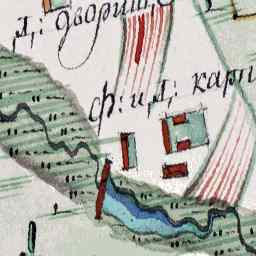 Д: дворищ
ф: и Д: карп